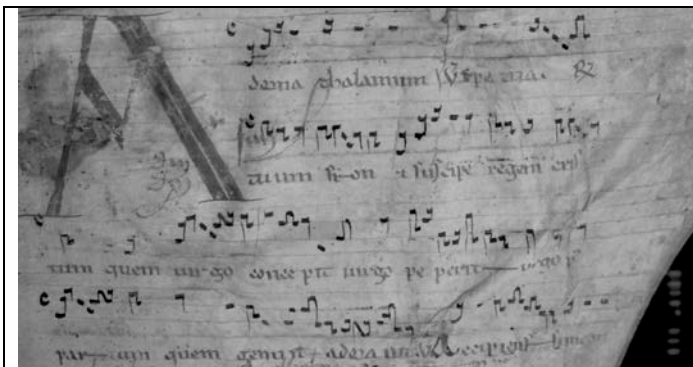 A
dorna thalamum
tuum sy-on & suscipe regem cris
tum quem uirgo concepit uirgo peperit uirgo p
par-tum quem genuit adorauit Accipiens simeon